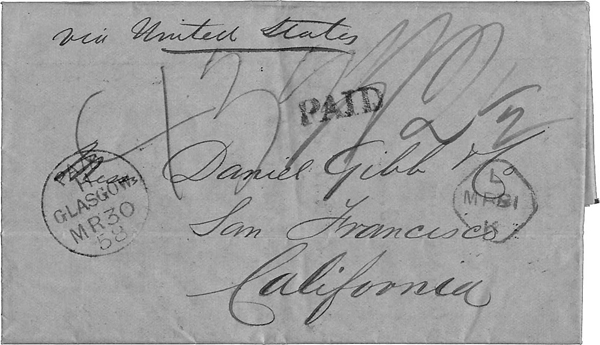 via United States
PAID
2 1/2
Messrs Daniel Gibb & Co
San Francisco
California
PAID
GLASGOW
MR 30
58
L
MR 31
K